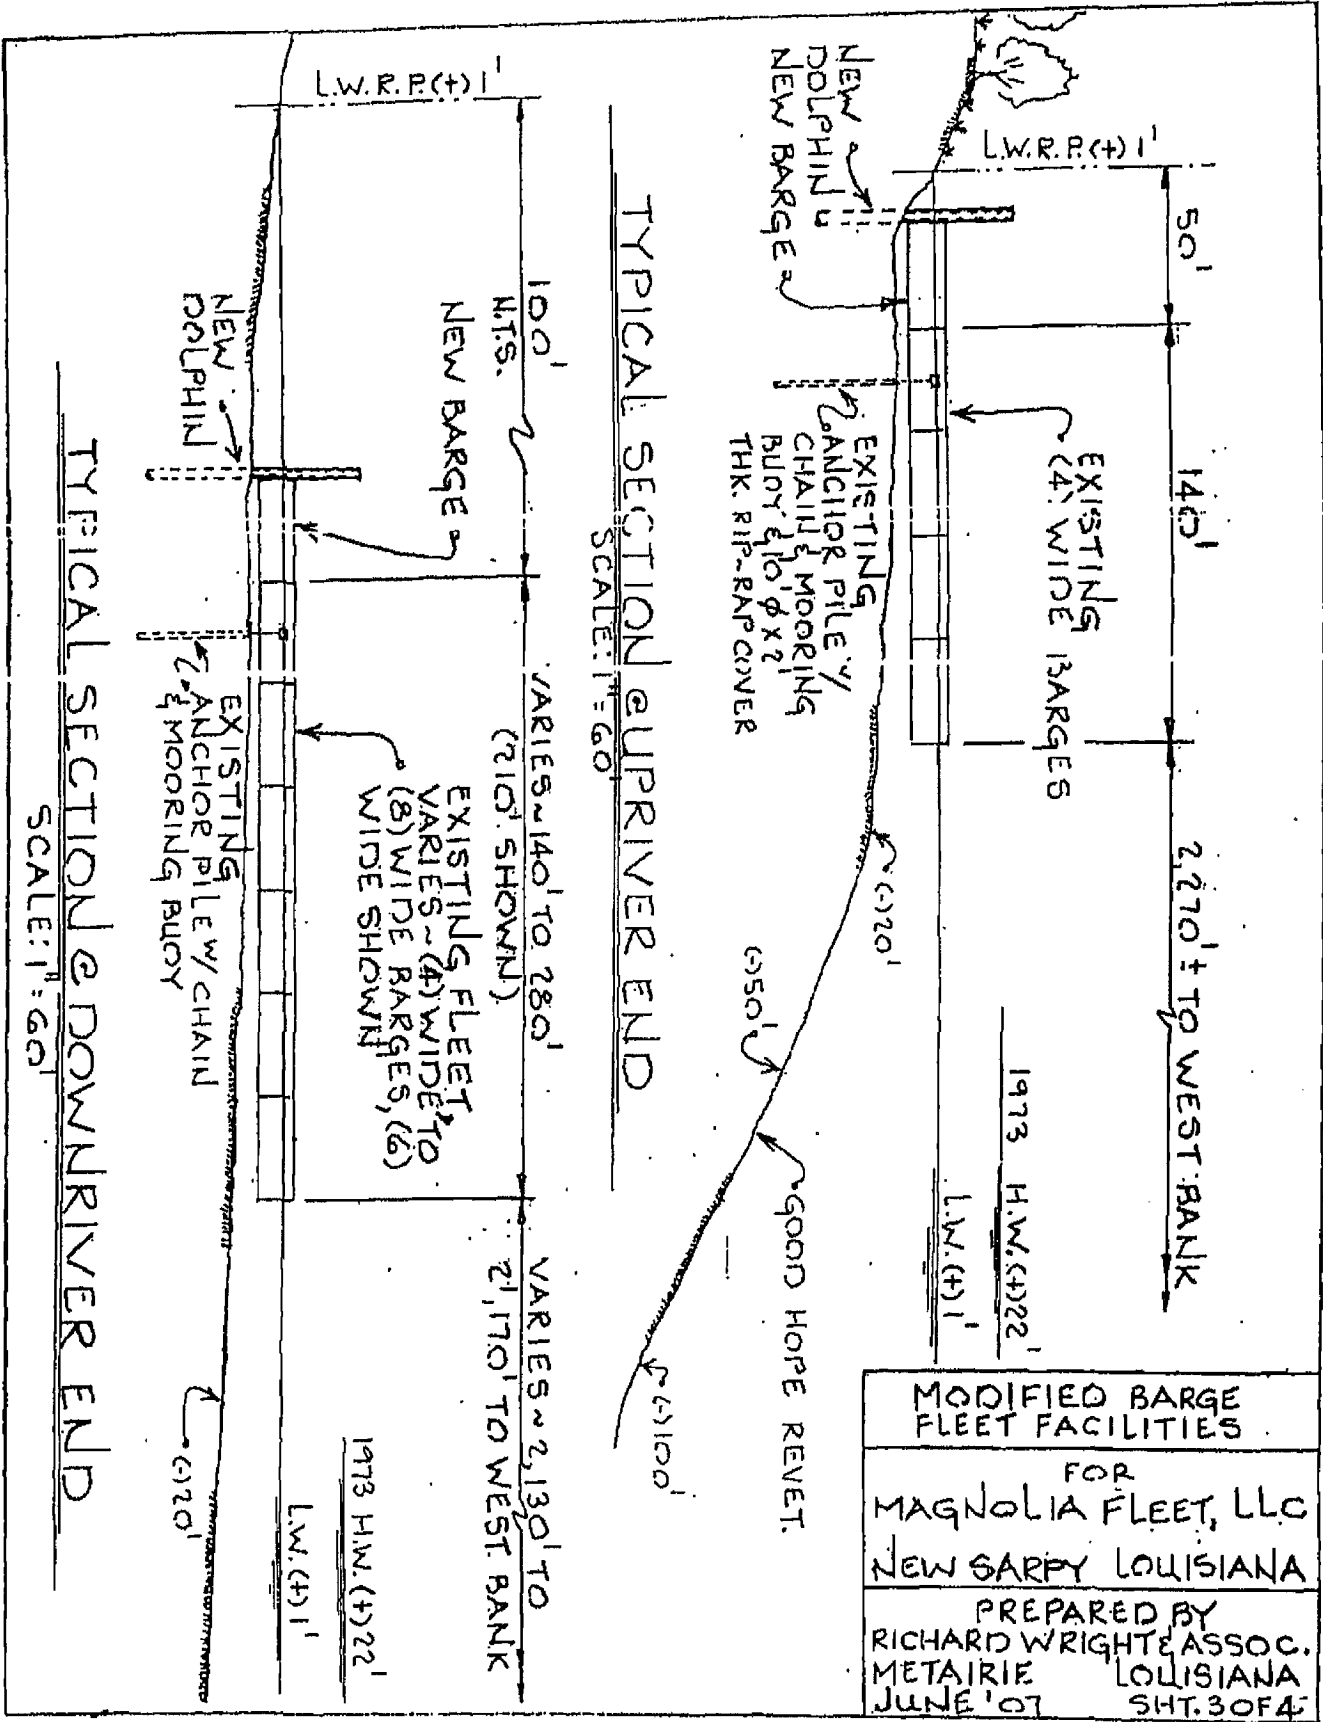 L.W.R.P.(+)1'
50'
140'
2,270'± TO WEST BANK
NEW
DOLPHIN
NEW BARGE
EXISTING
(4) WIDE BARGES
1973 H.W.(+)22'
L.W.(+)1'
EXISTING
ANCHOR PILE W/
CHAIN & MOORING
BUOY & 10' Ø X 2'
THK. RIP-RAP COVER
(-)20'
(-)50'
GOOD HOPE REVET.
(-)100'
TYPICAL SECTION @ UPRIVER END
SCALE: 1"=60'
L.W.R.P.(+)1'
100'
N.T.S.
VARIES~140' TO 280'
(210' SHOWN)
VARIES~2,130' TO
2,170' TO WEST BANK
NEW BARGE
EXISTING FLEET
VARIES~(4) WIDE TO
(8) WIDE BARGES, (6)
WIDE SHOWN
1973 H.W.(+)22'
L.W.(+)1'
NEW
DOLPHIN
EXISTING
ANCHOR PILE W/ CHAIN
& MOORING BUOY
(-)20'
TYPICAL SECTION @ DOWNRIVER END
SCALE: 1"=60'
MODIFIED BARGE
FLEET FACILITIES
FOR
MAGNOLIA FLEET, LLC
NEW SARPY LOUISIANA
PREPARED BY
RICHARD WRIGHT & ASSOC.
METAIRIE LOUISIANA
JUNE '07 SHT. 3 OF 4